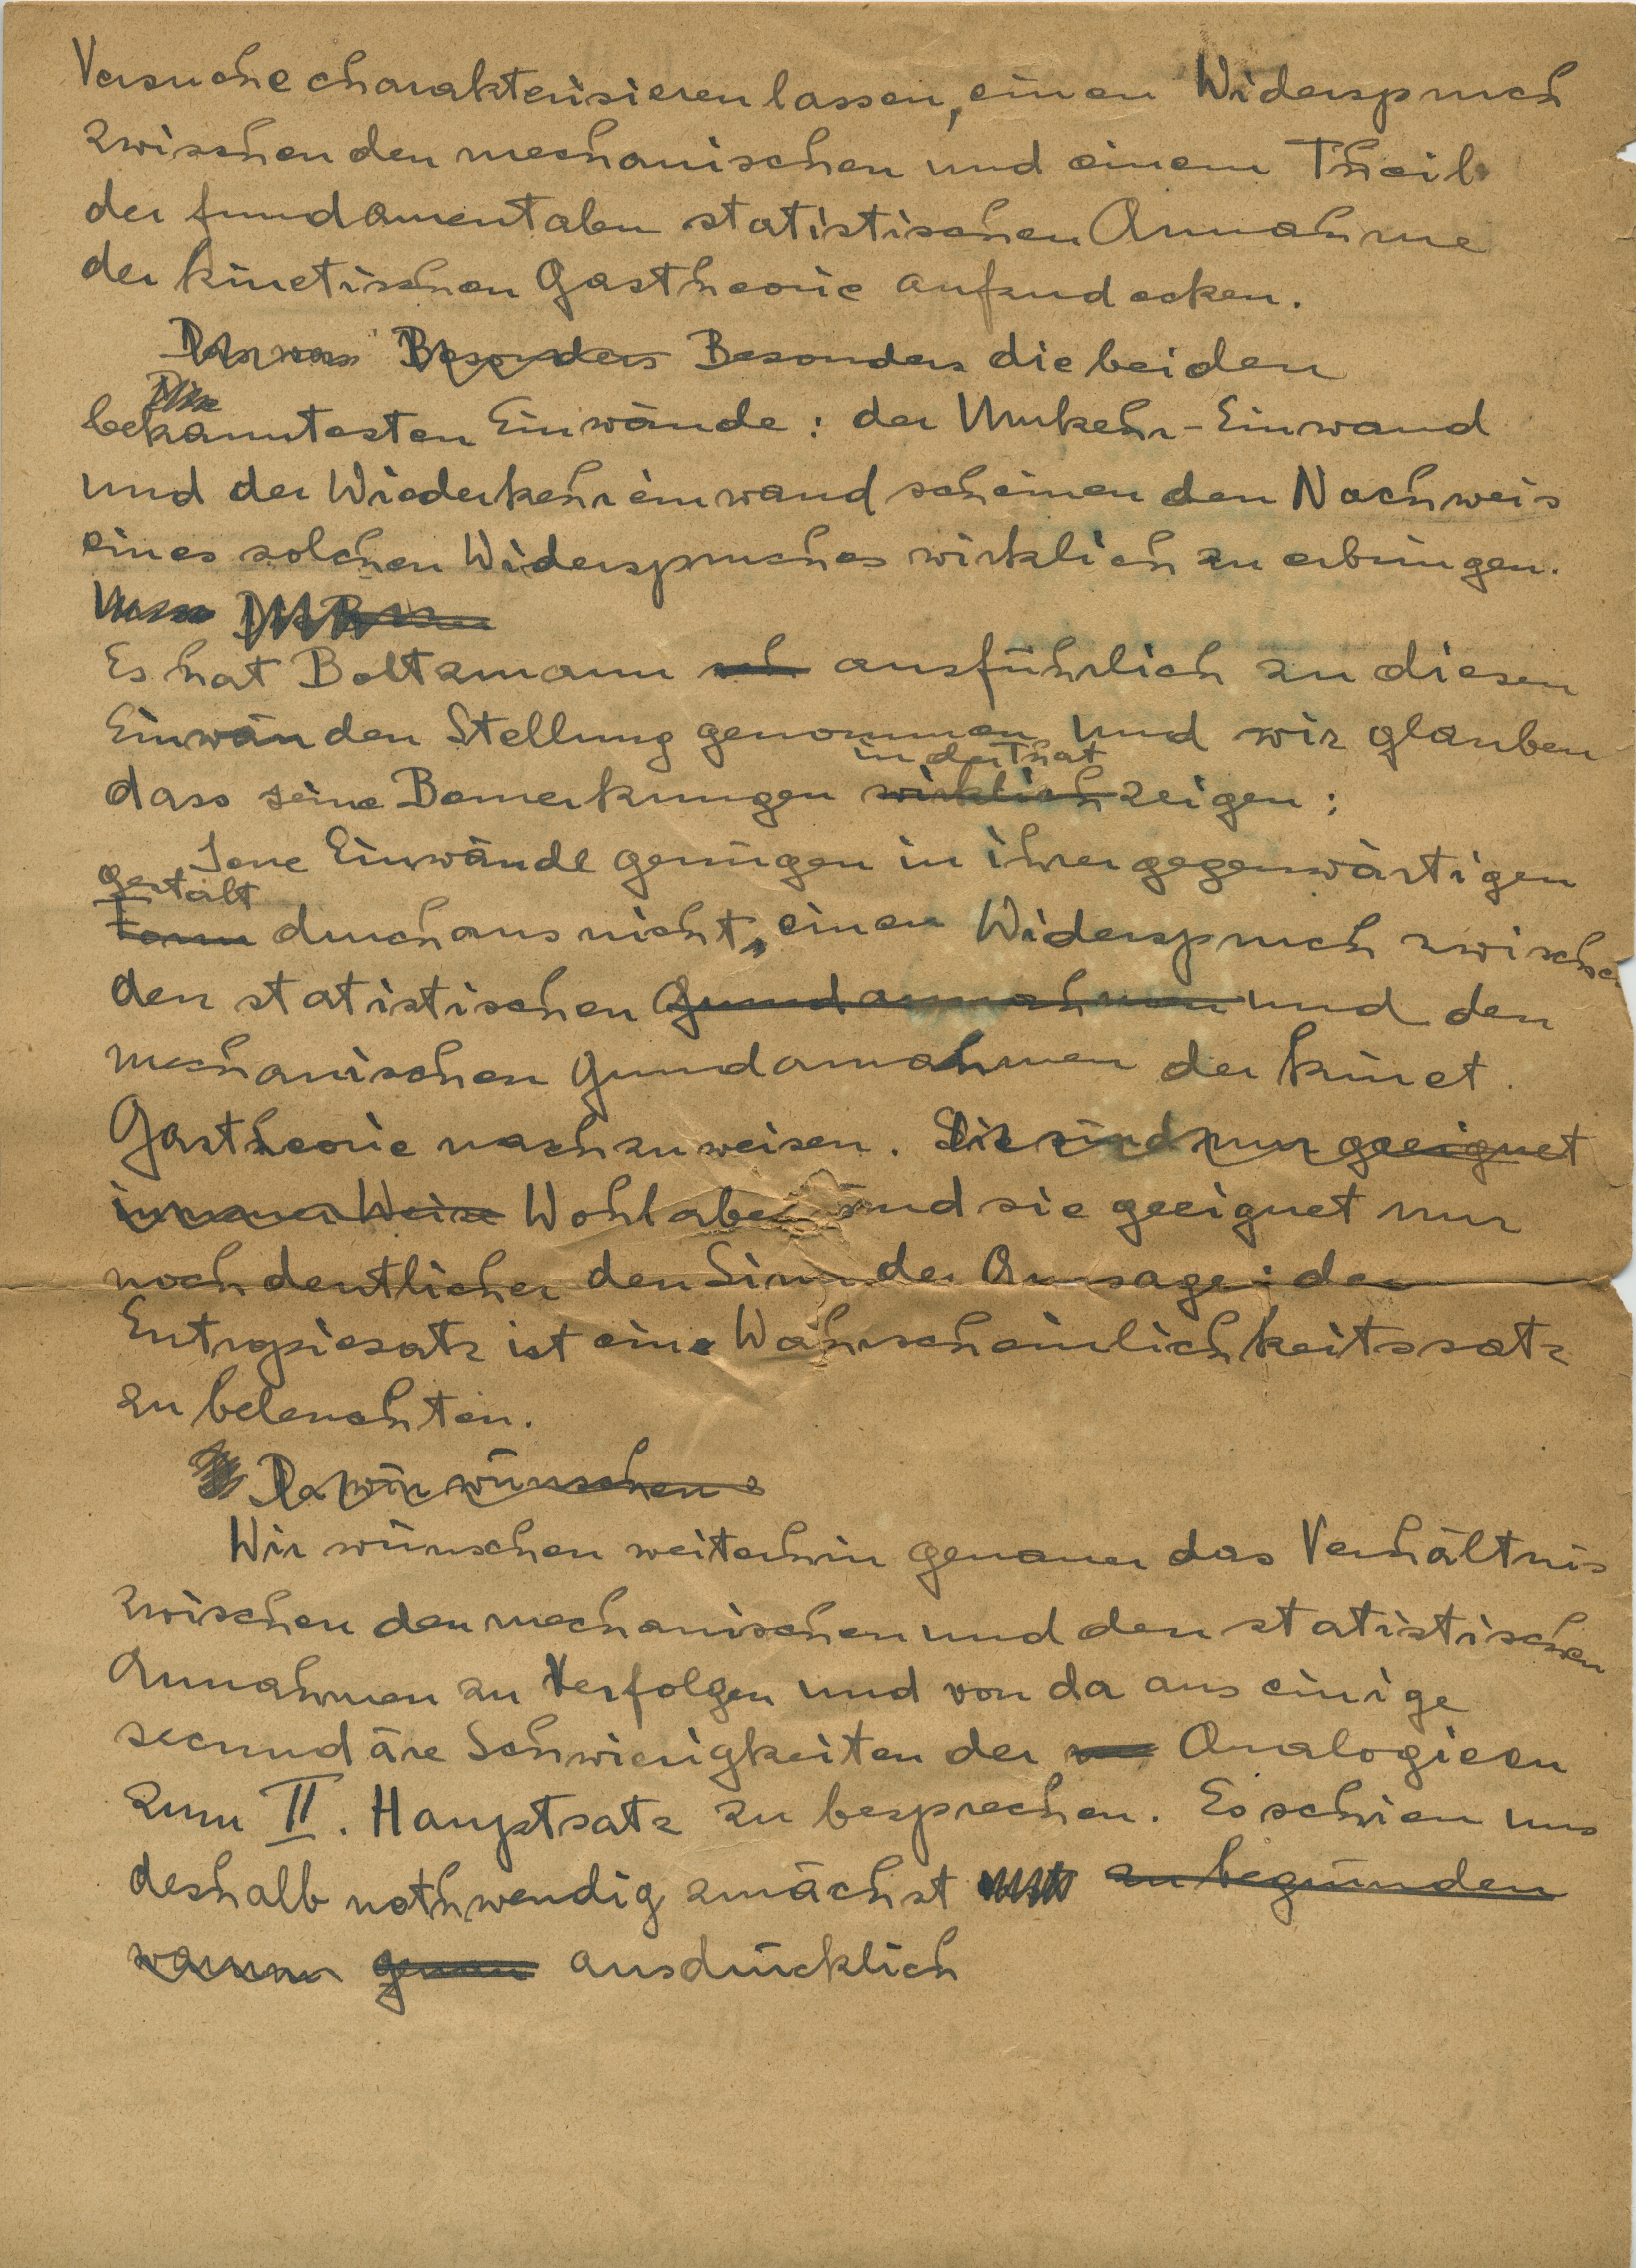 Versuche charakterisieren lassen, einen Widerspruch
zwischen den mechanischen und einem Theil
der fundamentalen statistischen Annahme
der kinetischen Gastheorie aufzudecken.
Besonders Besonders die beiden
Die
bekanntesten Einwände: der Umkehr-Einwand
und der Wiederkehreinwand scheinen den Nachweis
eines solchen Widerspruches wirklich zu erbringen.
Es hat Boltzmann ausführlich zu diesen
Einwänden Stellung genommen und wir glauben
in der That
dass seine Bemerkungen wirklich zeigen:
Jene Einwände genügen in ihrer gegenwärtigen
Gestalt
Form durchaus nicht, einen Widerspruch zwischen
den statistischen Grundannahmen und den
mechanischen Grundannahmen der kinet.
Gastheorie nachzuweisen. Sie sind nur geeignet
in neuer Weise Wohl aber sind sie geeignet nur
noch deutlicher den Sinn der Aussage: der
Entropiesatz ist eine Wahrscheinlichkeitssatz
zu beleuchten.
Da wir wünschen
Wir wünschen weiterhin genauer das Verhältnis
zwischen den mechanischen und den statistischen
Annahmen zu Verfolgen und von da aus einige
secundäre Schwierigkeiten der Analogieen
zum II. Hauptsatz zu besprechen. Es schien uns
deshalb nothwendig zunächst zu begründen
warum genau ausdrücklich